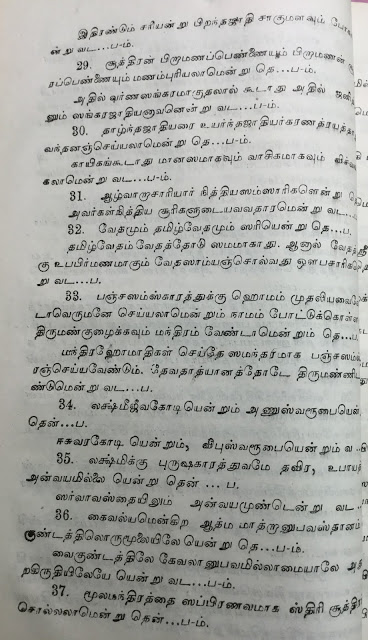 இதிரண்டும் சரியன்று பிறந்தஜாதி சாகுமளவும்
ன்று வட...ப-ம்.
29. சூத்திரன் பிராமணப்பெண்ணையும் பிராமணன்
ரப்பெண்ணையும் மணம்புரியலாமென்று தெ...ப-ம்.
அதில் வர்ணஸங்கரமாகுதலால் கூடாது அதில்
னும் ஸங்கரஜாதியனாவனென்று வட...ப-ம்.
30. தாழ்ந்தஜாதியரை உயர்ந்தஜாதியர்கரணத்ரயத்தா
வந்தனஞ்செய்யலாமென்று தெ...ப-ம்.
காயிகங்கூடாது மானஸமாகவும் வாசிகமாகவும்
கலாமென்று வட...ப-ம்.
31. ஆழ்வாராசாரியார் நித்தியஸம்ஸாரிகளென்று
அவர்கள்நித்திய சூரிகளுடையவவதாரமென்று வட...
32. வேதமும் தமிழ்வேதமும் ஸரியென்று தெ...ப.
தமிழ்வேதம்வேதத்தோடு ஸமமாகாது. ஆனால்
கு உபபிர்மணமாகும் வேதஸாம்யஞ்சொல்வது
று வட...ப.
33. பஞ்சஸம்ஸ்காரத்துக்கு ஹோமம் முதலியவை
டாவெருமனே செய்யலாமென்றும் நாமம் போட்டுக்கொள்ள
திருமண்குழைக்கவும் மந்திரம் வேண்டாமென்றும் தெ...ப.
மந்திரஹோமாதிகள் செய்தே ஸமந்தரமாக
ரஞ்செய்யவேண்டும். தேவதாத்யானத்தோடே
ண்டுமென்று வட...ப.
34. லக்ஷ்மீஜீவகோடியென்றும் அணுஸ்வரூபை
தென்...ப.
ஈசுவரகோடி யென்றும், வீபுஸ்வரூபையென்றும்
35. லக்ஷ்மிக்கு புருஷகாரத்துவமே தவிர,
அன்வயமில்லை யென்று தென் ... ப.
ஸர்வாவஸ்தையிலும் அன்வயமுண்டென்று வட
36. கைவல்யமென்கிற ஆத்ம மாத்ரானுபவஸ்தானம்
குண்டத்திலொருமூலையிலே யென்று தெ...ப-ம்.
வைகுண்டத்திலே கேவலானுபவமில்லாமையாலே
றகிருதியிலேயே யென்று வட...ப-ம்.
37. மூலமந்திரத்தை ஸப்பிரணவமாக ஸ்திரி
சொல்லலாமென்று தென்...ப-ம்.